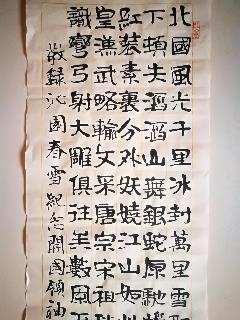 北國風光千里冰封萬里雪
下頓失滔滔山舞銀蛇原馳
紅裝素裹分外妖嬈江山如
皇漢武略輸文采唐宗宋祖
識彎弓射大雕俱往矣數風
敬録沁園春雪紀念開國領袖